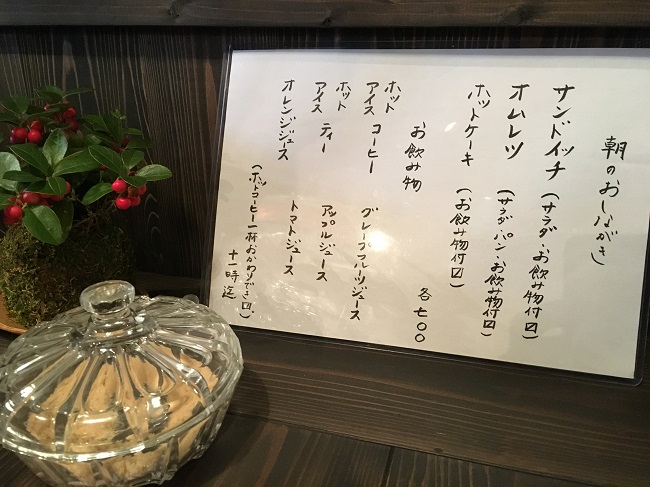 朝のおしながき
サンドイッチ (サラダ・お飲み物付〼)
オムレツ (サラダ・パン・お飲み物付〼)
ホットケーキ (お飲み物付〼)
お飲み物 各七〇〇
ホット
アイス コーヒー グレープフルーツジュース
ホット
アイス ティー アップルジュース
オレンジジュース トマトジュース
(ホットコーヒー一杯おかわりでき〼)
十一時迄